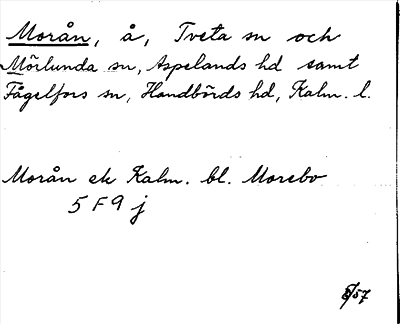 Morån, å, Tveta sn och
Mörlunda sn, Aspelands hd samt
Fågelfors sn, Handbörds hd, Kalm. l.
Morån ek Kalm. bl. Morebo
5 F 9 j
5/57